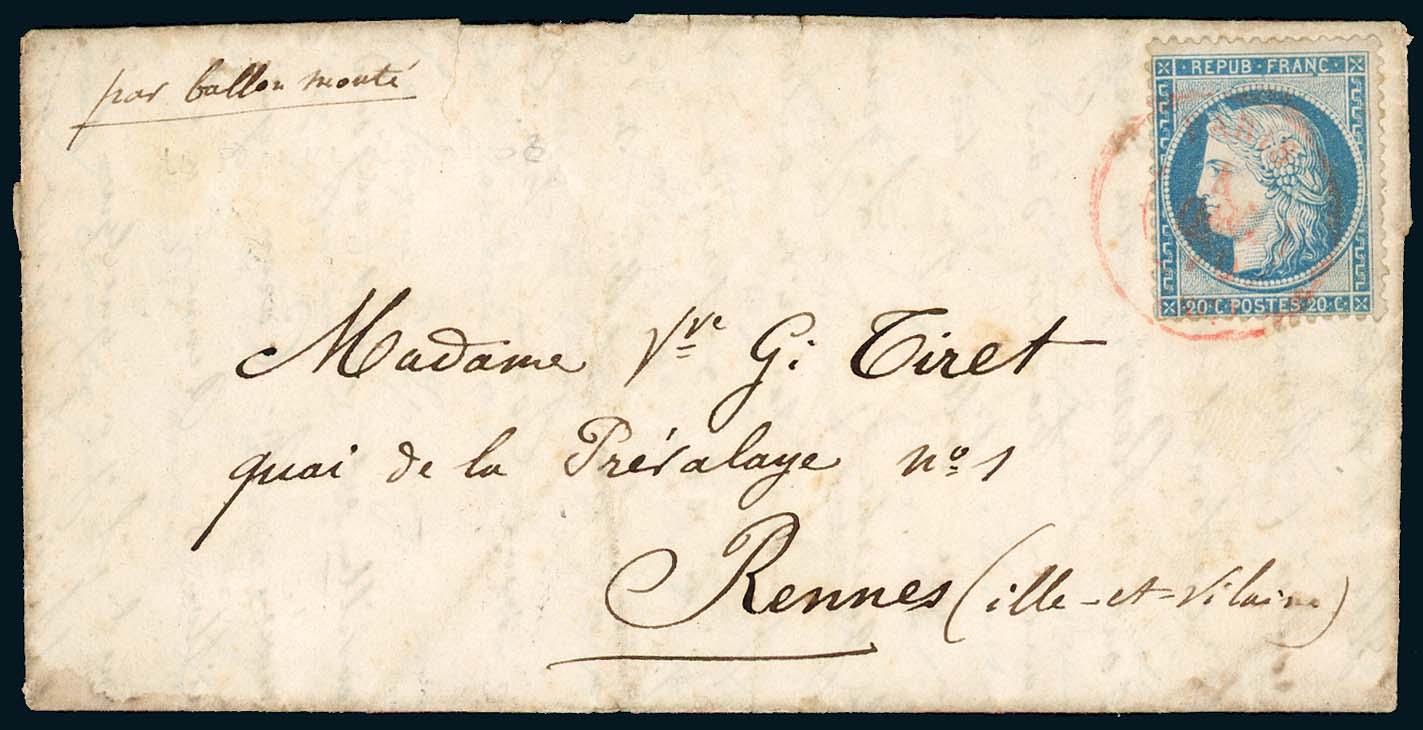 par ballon monté
REPUB·FRANC·
20·C·POSTES·20·C·
Madame Vve G: Tiret
quai de la Prévalaye nº 1
Rennes (ille-et-Vilaine)